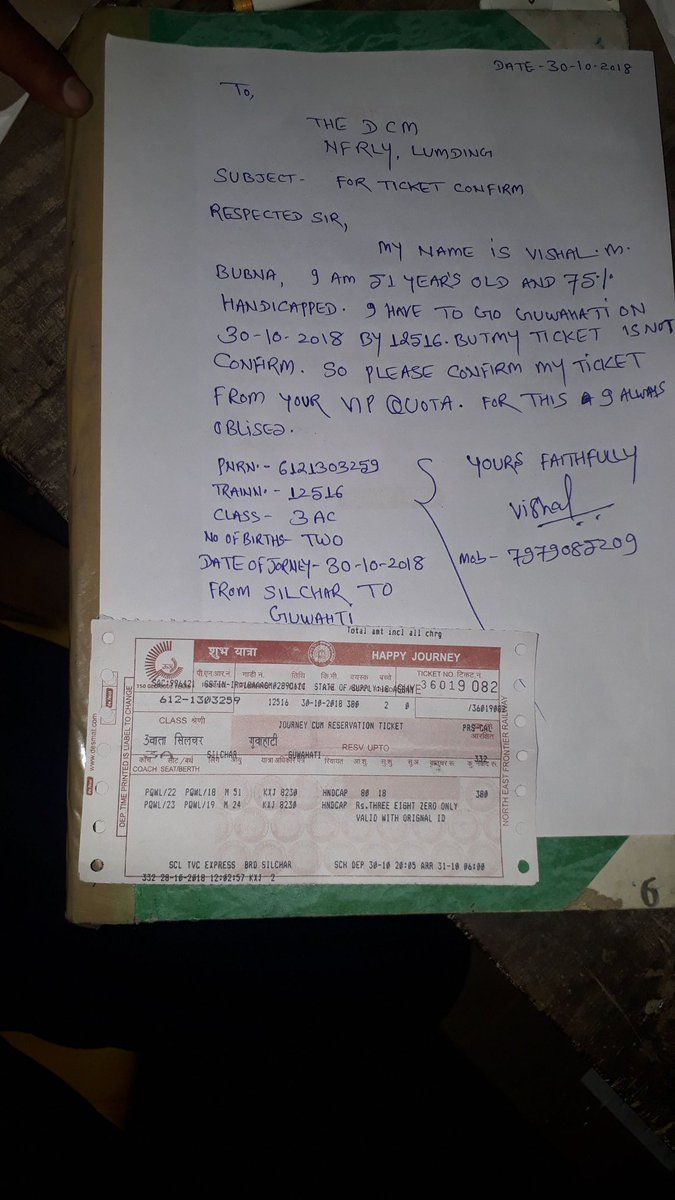 DATE-30-10-2018
To,
THE DCM
NFRLY, LUMDING
SUBJECT- FOR TICKET CONFIRM
RESPECTED SIR,
MY NAME IS VISHAL.M.
BUBNA, I AM 51 YEAR'S OLD AND 75%
HANDICAPPED. I HAVE TO GO GUWAHATI ON
30-10-2018 BY 12516. BUT MY TICKET IS NOT
CONFIRM. SO PLEASE CONFIRM MY TICKET
FROM YOUR VIP QUOTA. FOR THIS I ALWAYS
OBLISED.
PNRN.- 6121303259
TRAINN.- 12516
CLASS- 3AC
NO OF BIRTHS- TWO
DATE OF JORNEY- 30-10-2018
FROM SILCHAR TO
GUWAHTI
YOURS FAITHFULLY
Vishal
Mob- 7979085209
Total amt incl all chrg
शुभ यात्रा HAPPY JOURNEY
पी.एन.आर.नं. गाडी नं. तिथि कि.मी. वयस्क बच्चे TICKET NO. टिकट नं.
SAC:996421 STATE OF SUPPLY:18 36019 082
612-1303259 12516 30-10-2018 380 2 0
CLASS श्रेणी JOURNEY CUM RESERVATION TICKET
3वाता सिलचर गुवाहाटी RESV UPTO
3A SILCHAR GUWAHATI 332
COACH SEAT/BERTH
PQWL/22 PQWL/18 M 51 KXJ 8230 HNDCAP 80 18 380
PQWL/23 PQWL/19 M 24 KXJ 8230 HNDCAP Rs.THREE EIGHT ZERO ONLY
VALID WITH ORIGNAL ID
SCL TVC EXPRESS BRD SILCHAR SCH DEP 30-10 20:05 ARR 31-10 06:00
332 28-10-2018 12:02:57 KXJ 2
www.desmat.com
DEP. TIME PRINTED IS LIABLE TO CHANGE
NORTH EAST FRONTIER RAILWAY
6